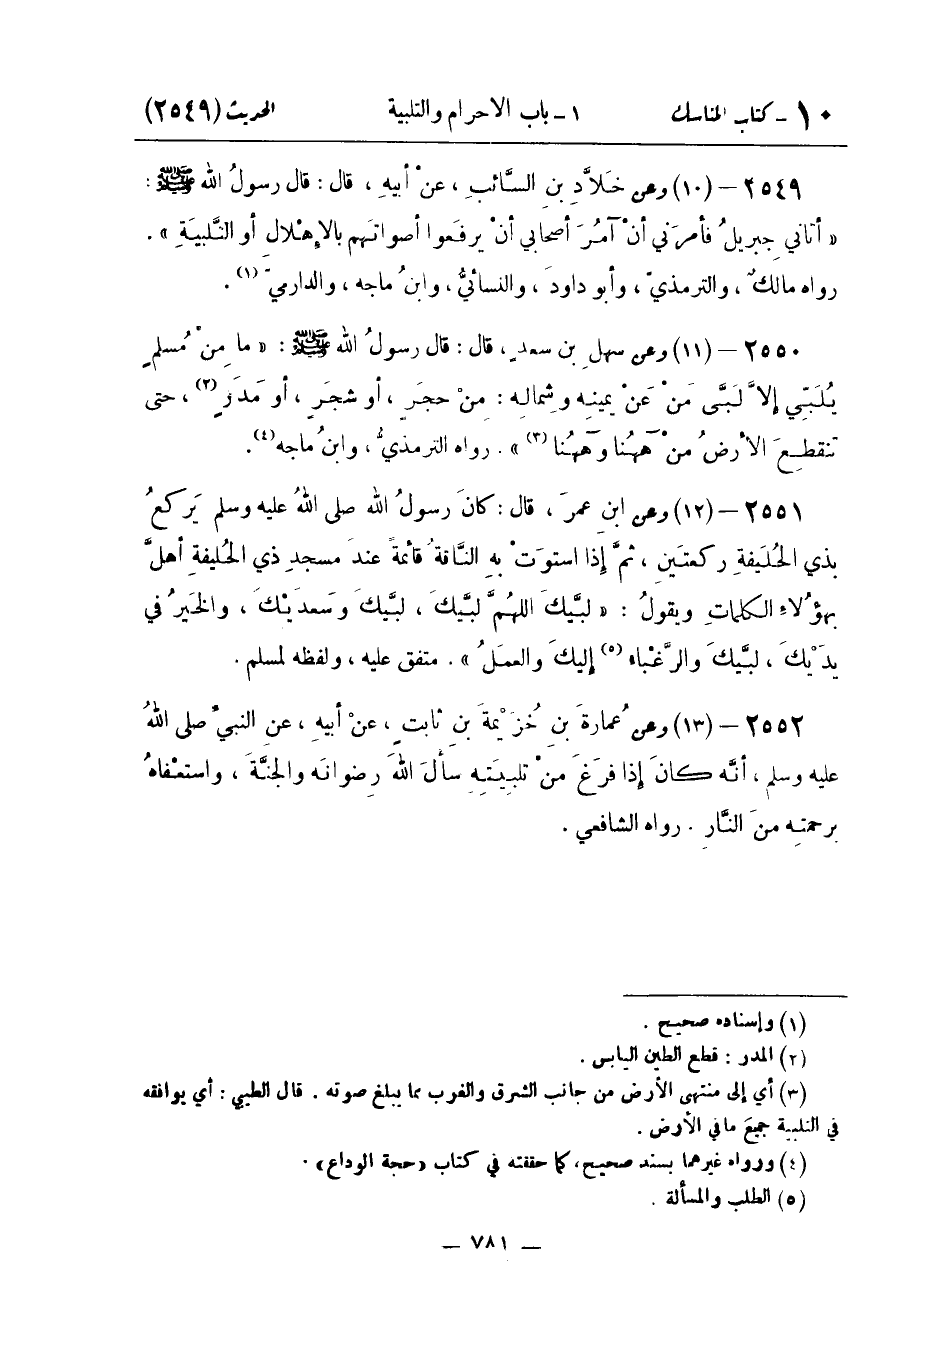 ١٠ - كتاب المناسك    ١ - باب الاحرام والتلبية    الحديث (٢٥٤٩)
٢٥٤٩ – (١٠) وعن خَلاَّدِ بنِ السَّائبِ ، عنْ أبيهِ ، قال : قال رسولُ الله ﷺ :
« أتاني جبريلُ فأمرَني أنْ آمُرَ أصحابي أنْ يرفَعوا أصواتَهم بالإِهْلالِ أو التَّلبيَةِ » .
رواه مالكٌ ، والترمذيّ ، وأبو داودَ ، والنسائيُّ ، وابنُ ماجه ، والدارميّ (١) .
٢٥٥٠ – (١١) وعن سهلِ بن سعدٍ ، قال : قال رسولُ الله ﷺ : « ما مِنْ مُسلمٍ
يُلَبّي إلاَّ لَبَّى مَنْ عَنْ يمينِه وشمالِه : مِنْ حجَرٍ ، أو شجَرٍ ، أو مَدَرٍ (٢) ، حتى
تنقطِعَ الأرْضُ مِنْ ههُنا وههُنا (٣) » . رواه الترمذيُّ ، وابنُ ماجه (٤) .
٢٥٥١ – (١٢) وعن ابنِ عمرَ ، قال : كانَ رسولُ الله صلى اللهُ عليه وسلم يَركعُ
بذي الحُلَيفةِ ركعتَينِ ، ثمَّ إذا استوَتْ بهِ النَّاقةُ قائمةً عندَ مسجدِ ذي الحُليفةِ أهلَّ
بهؤُلاءِ الكلماتِ ويقولُ : « لبَّيكَ اللهُمَّ لبَّيكَ ، لبَّيكَ وَسَعدَيْكَ ، والخَيرُ في
يدَيْكَ ، لبَّيكَ والرَّغْباء (٥) إليكَ والعمَلُ » . متفق عليه ، ولفظه لمسلم .
٢٥٥٢ – (١٣) وعن عُمارةَ بنِ خُزَيْمةَ بنِ ثابتٍ ، عنْ أبيه ، عن النبيِّ صلى اللهُ
عليه وسلم ، أنَّه كانَ إذا فرَغَ مِنْ تلبيَتِهِ سألَ اللهَ رِضوانَه والجنَّةَ ، واستعْفاهُ
برحمتِه منَ النَّارِ . رواه الشافعي .
(١) وإسناده صحيح .
(٢) المدر : قطع الطين اليابس .
(٣) أي إلى منتهى الأرض من جانب الشرق والغرب مما يبلغ صوته . قال الطيبي : أي يوافقه
في التلبية جميعَ ما في الأرض .
(٤) ورواه غيرهما بسند صحيح، كما حققته في كتاب «حجة الوداع» .
(٥) الطلب والمسألة .
— ٧٨١ —